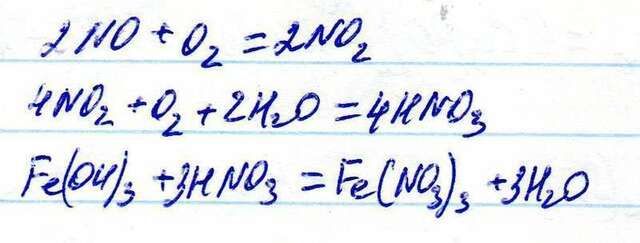 2NO + O₂ = 2NO₂
4NO₂ + O₂ + 2H₂O = 4HNO₃
Fe(OH)₃ + 3HNO₃ = Fe(NO₃)₃ + 3H₂O